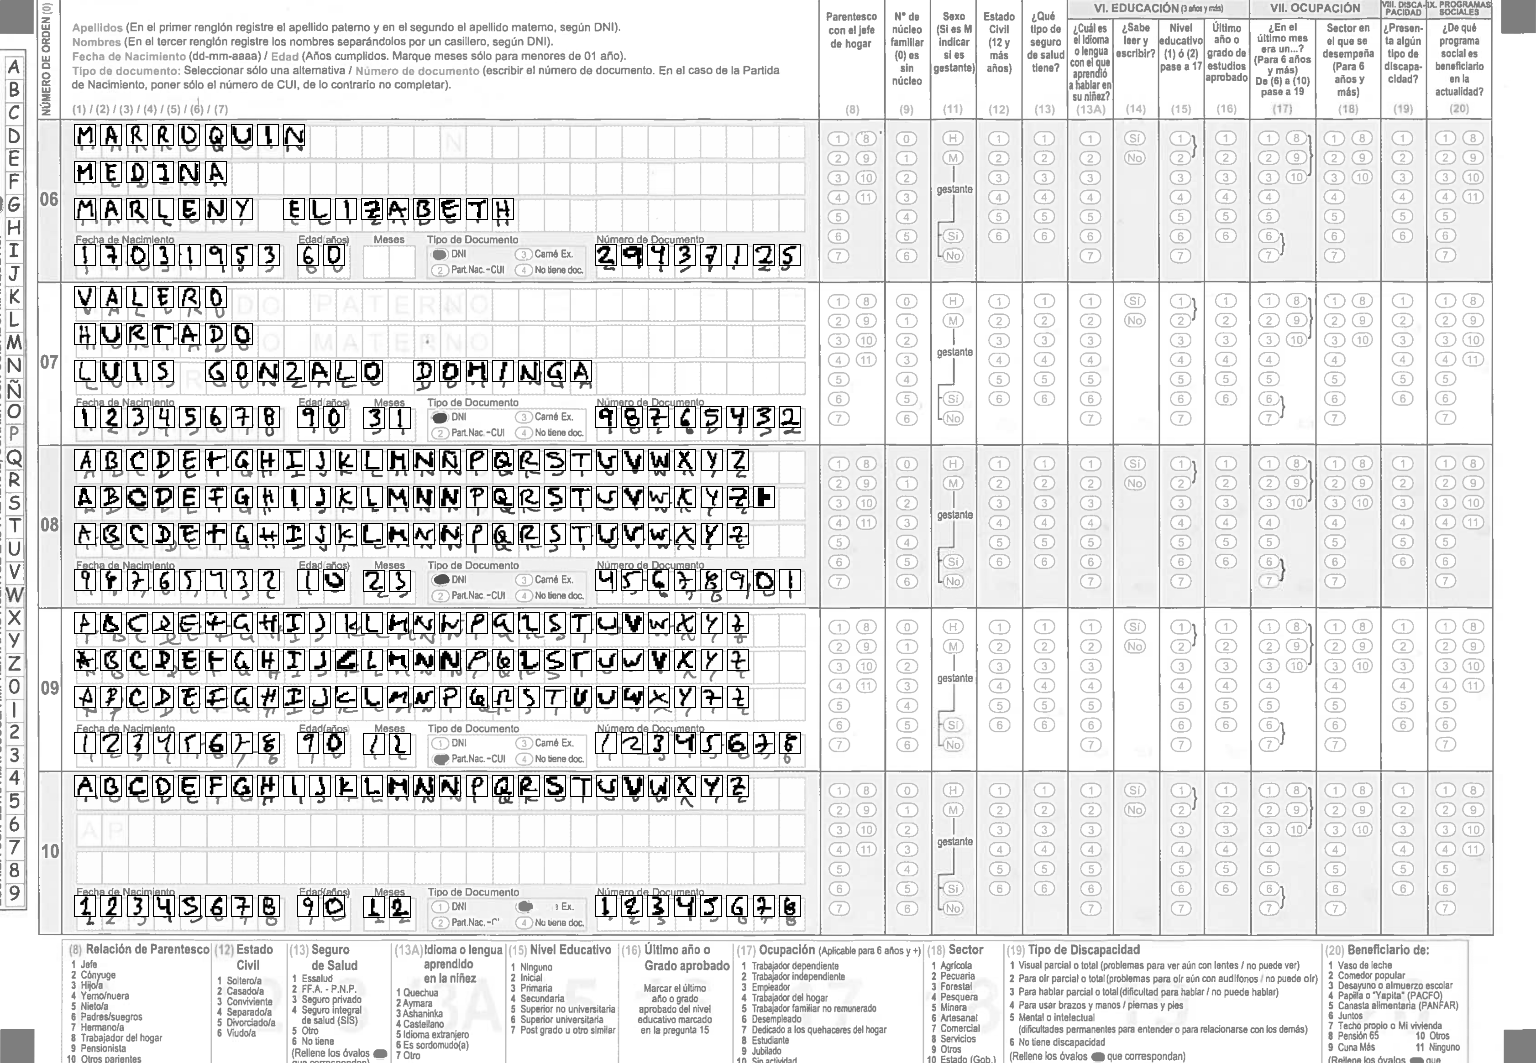 Apellidos (En el primer renglón registre el apellido paterno y en el segundo el apellido materno, según DNI).
Nombres (En el tercer renglón registre los nombres separándolos por un casillero, según DNI).
Fecha de Nacimiento (dd-mm-aaaa) / Edad (Años cumplidos. Marque meses sólo para menores de 01 año).
Tipo de documento: Seleccionar sólo una alternativa / Número de documento (escribir el número de documento. En el caso de la Partida
de Nacimiento, poner sólo el número de CUI, de lo contrario no completar).
(1) / (2) / (3) / (4) / (5) / (6) / (7)
NÚMERO DE ORDEN (0)
Parentesco con el jefe de hogar (8)
N° de núcleo familiar (0) es sin núcleo (9)
Sexo (Si es M indicar si es gestante) (11)
Estado Civil (12 y más años) (12)
¿Qué tipo de seguro de salud tiene? (13)
VI. EDUCACIÓN (3 años y más)
¿Cuál es el idioma o lengua con el que aprendió a hablar en su niñez? (13A)
¿Sabe leer y escribir? (14)
Nivel educativo (1) ó (2) pase a 17 (15)
Último año o grado de estudios aprobado (16)
VII. OCUPACIÓN
¿En el último mes era un...? (Para 6 años y más) De (6) a (10) pase a 19 (17)
Sector en el que se desempeña (Para 6 años y más) (18)
VIII. DISCAPACIDAD
¿Presenta algún tipo de discapacidad? (19)
IX. PROGRAMAS SOCIALES
¿De qué programa social es beneficiario en la actualidad? (20)
A B C D E F G H I J K L M N Ñ O P Q R S T U V W X Y Z 0 1 2 3 4 5 6 7 8 9
06
MARROQUIN
MEDINA
MARLENY ELIZABETH
Fecha de Nacimiento Edad(años) Meses Tipo de Documento Número de Documento
17031953 60 DNI 3 Carné Ex. 29437125
2 Part.Nac.-CUI 4 No tiene doc.
07
VALERO
HURTADO
LUIS GONZALO DOMINGA
Fecha de Nacimiento Edad(años) Meses Tipo de Documento Número de Documento
12345678 90 31 DNI 3 Carné Ex. 98765432
2 Part.Nac.-CUI 4 No tiene doc.
08
ABCDEFGHIJKLMNÑPQRSTUVWXYZ
ABCDEFGHIJKLMNNPQRSTUVWXYZ
ABCDEFGHIJKLMNNPQRSTUVWXYZ
Fecha de Nacimiento Edad(años) Meses Tipo de Documento Número de Documento
98765432 10 23 DNI 3 Carné Ex. 45678901
2 Part.Nac.-CUI 4 No tiene doc.
09
Fecha de Nacimiento Edad(años) Meses Tipo de Documento Número de Documento
12345678 90 12 1 DNI 3 Carné Ex. 12345678
Part.Nac.-CUI 4 No tiene doc.
10
ABCDEFGHIJKLMNNPQRSTUVWXYZ
Fecha de Nacimiento Edad(años) Meses Tipo de Documento Número de Documento
12345678 90 12 1 DNI Ex. 12345678
2 Part.Nac. 4 No tiene doc.
(8) Relación de Parentesco
1 Jefe
2 Cónyuge
3 Hijo/a
4 Yerno/nuera
5 Nieto/a
6 Padres/suegros
7 Hermano/a
8 Trabajador del hogar
9 Pensionista
10 Otros parientes
(12) Estado Civil
1 Soltero/a
2 Casado/a
3 Conviviente
4 Separado/a
5 Divorciado/a
6 Viudo/a
(13) Seguro de Salud
1 Essalud
2 FF.A. - P.N.P.
3 Seguro privado
4 Seguro integral de salud (SIS)
5 Otro
6 No tiene
(Rellene los óvalos
(13A) Idioma o lengua aprendido en la niñez
1 Quechua
2 Aymara
3 Ashaninka
4 Castellano
5 Idioma extranjero
6 Es sordomudo(a)
7 Otro
(15) Nivel Educativo
1 Ninguno
2 Inicial
3 Primaria
4 Secundaria
5 Superior no universitaria
6 Superior universitaria
7 Post grado u otro similar
(16) Último año o Grado aprobado
Marcar el último año o grado aprobado del nivel educativo marcado en la pregunta 15
(17) Ocupación (Aplicable para 6 años y +)
1 Trabajador dependiente
2 Trabajador independiente
3 Empleador
4 Trabajador del hogar
5 Trabajador familiar no remunerado
6 Desempleado
7 Dedicado a los quehaceres del hogar
8 Estudiante
9 Jubilado
10 Sin actividad
(18) Sector
1 Agrícola
2 Pecuaria
3 Forestal
4 Pesquera
5 Minera
6 Artesanal
7 Comercial
8 Servicios
9 Otros
10 Estado (Gob.)
(19) Tipo de Discapacidad
1 Visual parcial o total (problemas para ver aún con lentes / no puede ver)
2 Para oir parcial o total (problemas para oír aún con audífonos / no puede oír)
3 Para hablar parcial o total (dificultad para hablar / no puede hablar)
4 Para usar brazos y manos / piernas y pies
5 Mental o intelectual
(dificultades permanentes para entender o para relacionarse con los demás)
6 No tiene discapacidad
(Rellene los óvalos que correspondan)
(20) Beneficiario de:
1 Vaso de leche
2 Comedor popular
3 Desayuno o almuerzo escolar
4 Papilla o "Yapita" (PACFO)
5 Canasta alimentaria (PANFAR)
6 Juntos
7 Techo propio o Mi vivienda
8 Pensión 65 10 Otros
9 Cuna Más 11 Ninguno
(Rellene los óvalos que